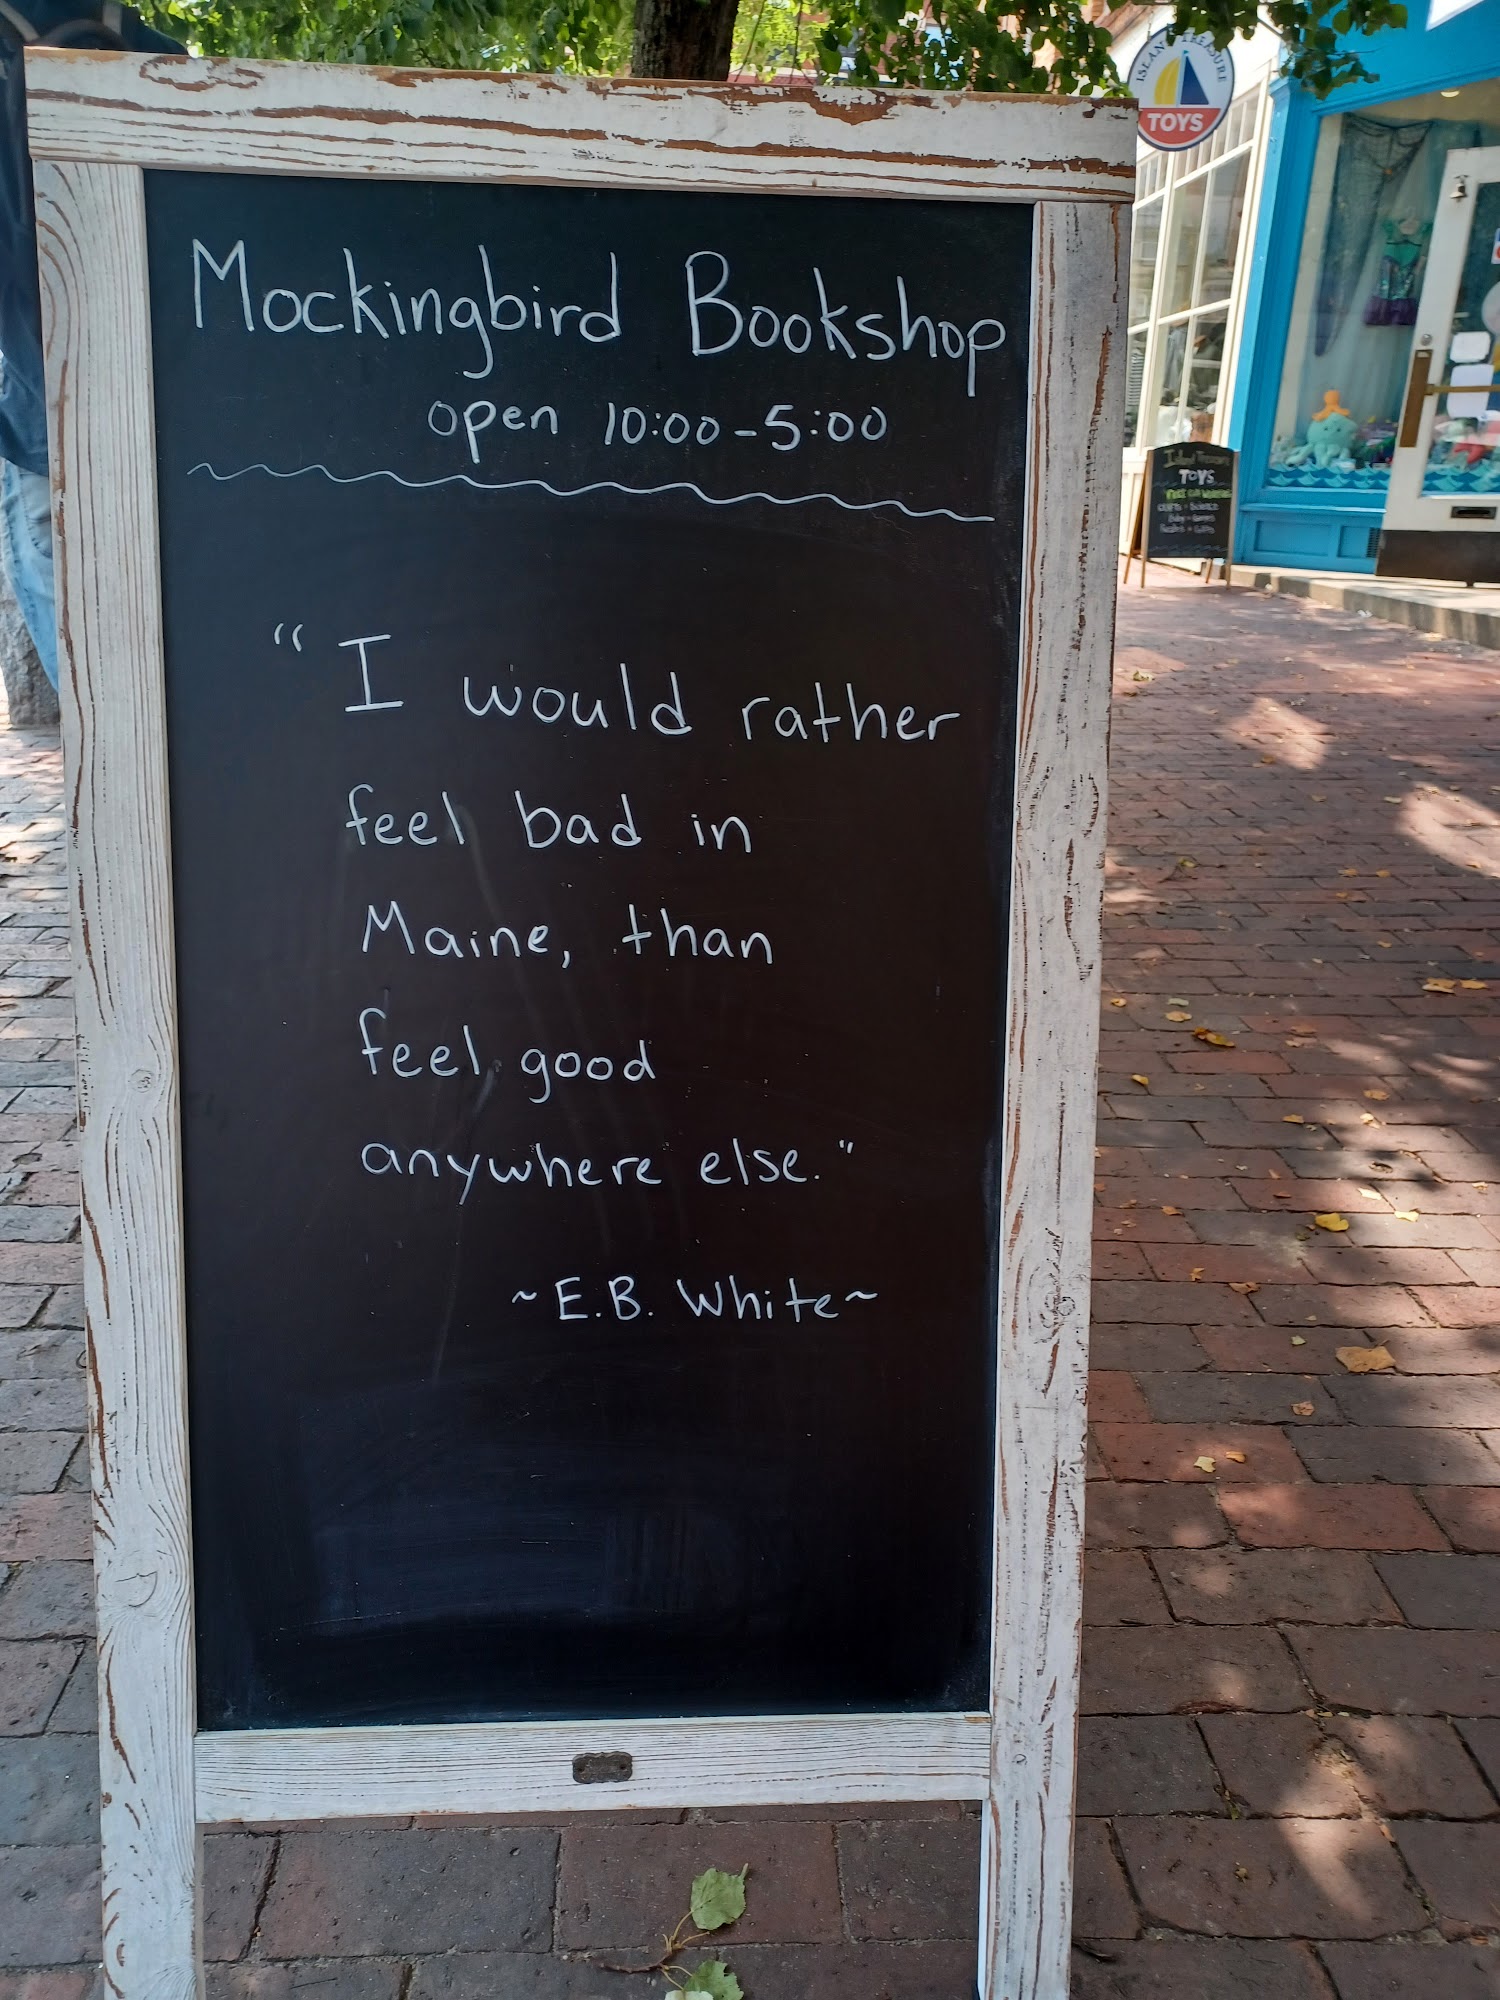 Mockingbird Bookshop
open 10:00-5:00
"I would rather
feel bad in
Maine, than
feel good
anywhere else."
~E.B. White~
TOYS
TOYS